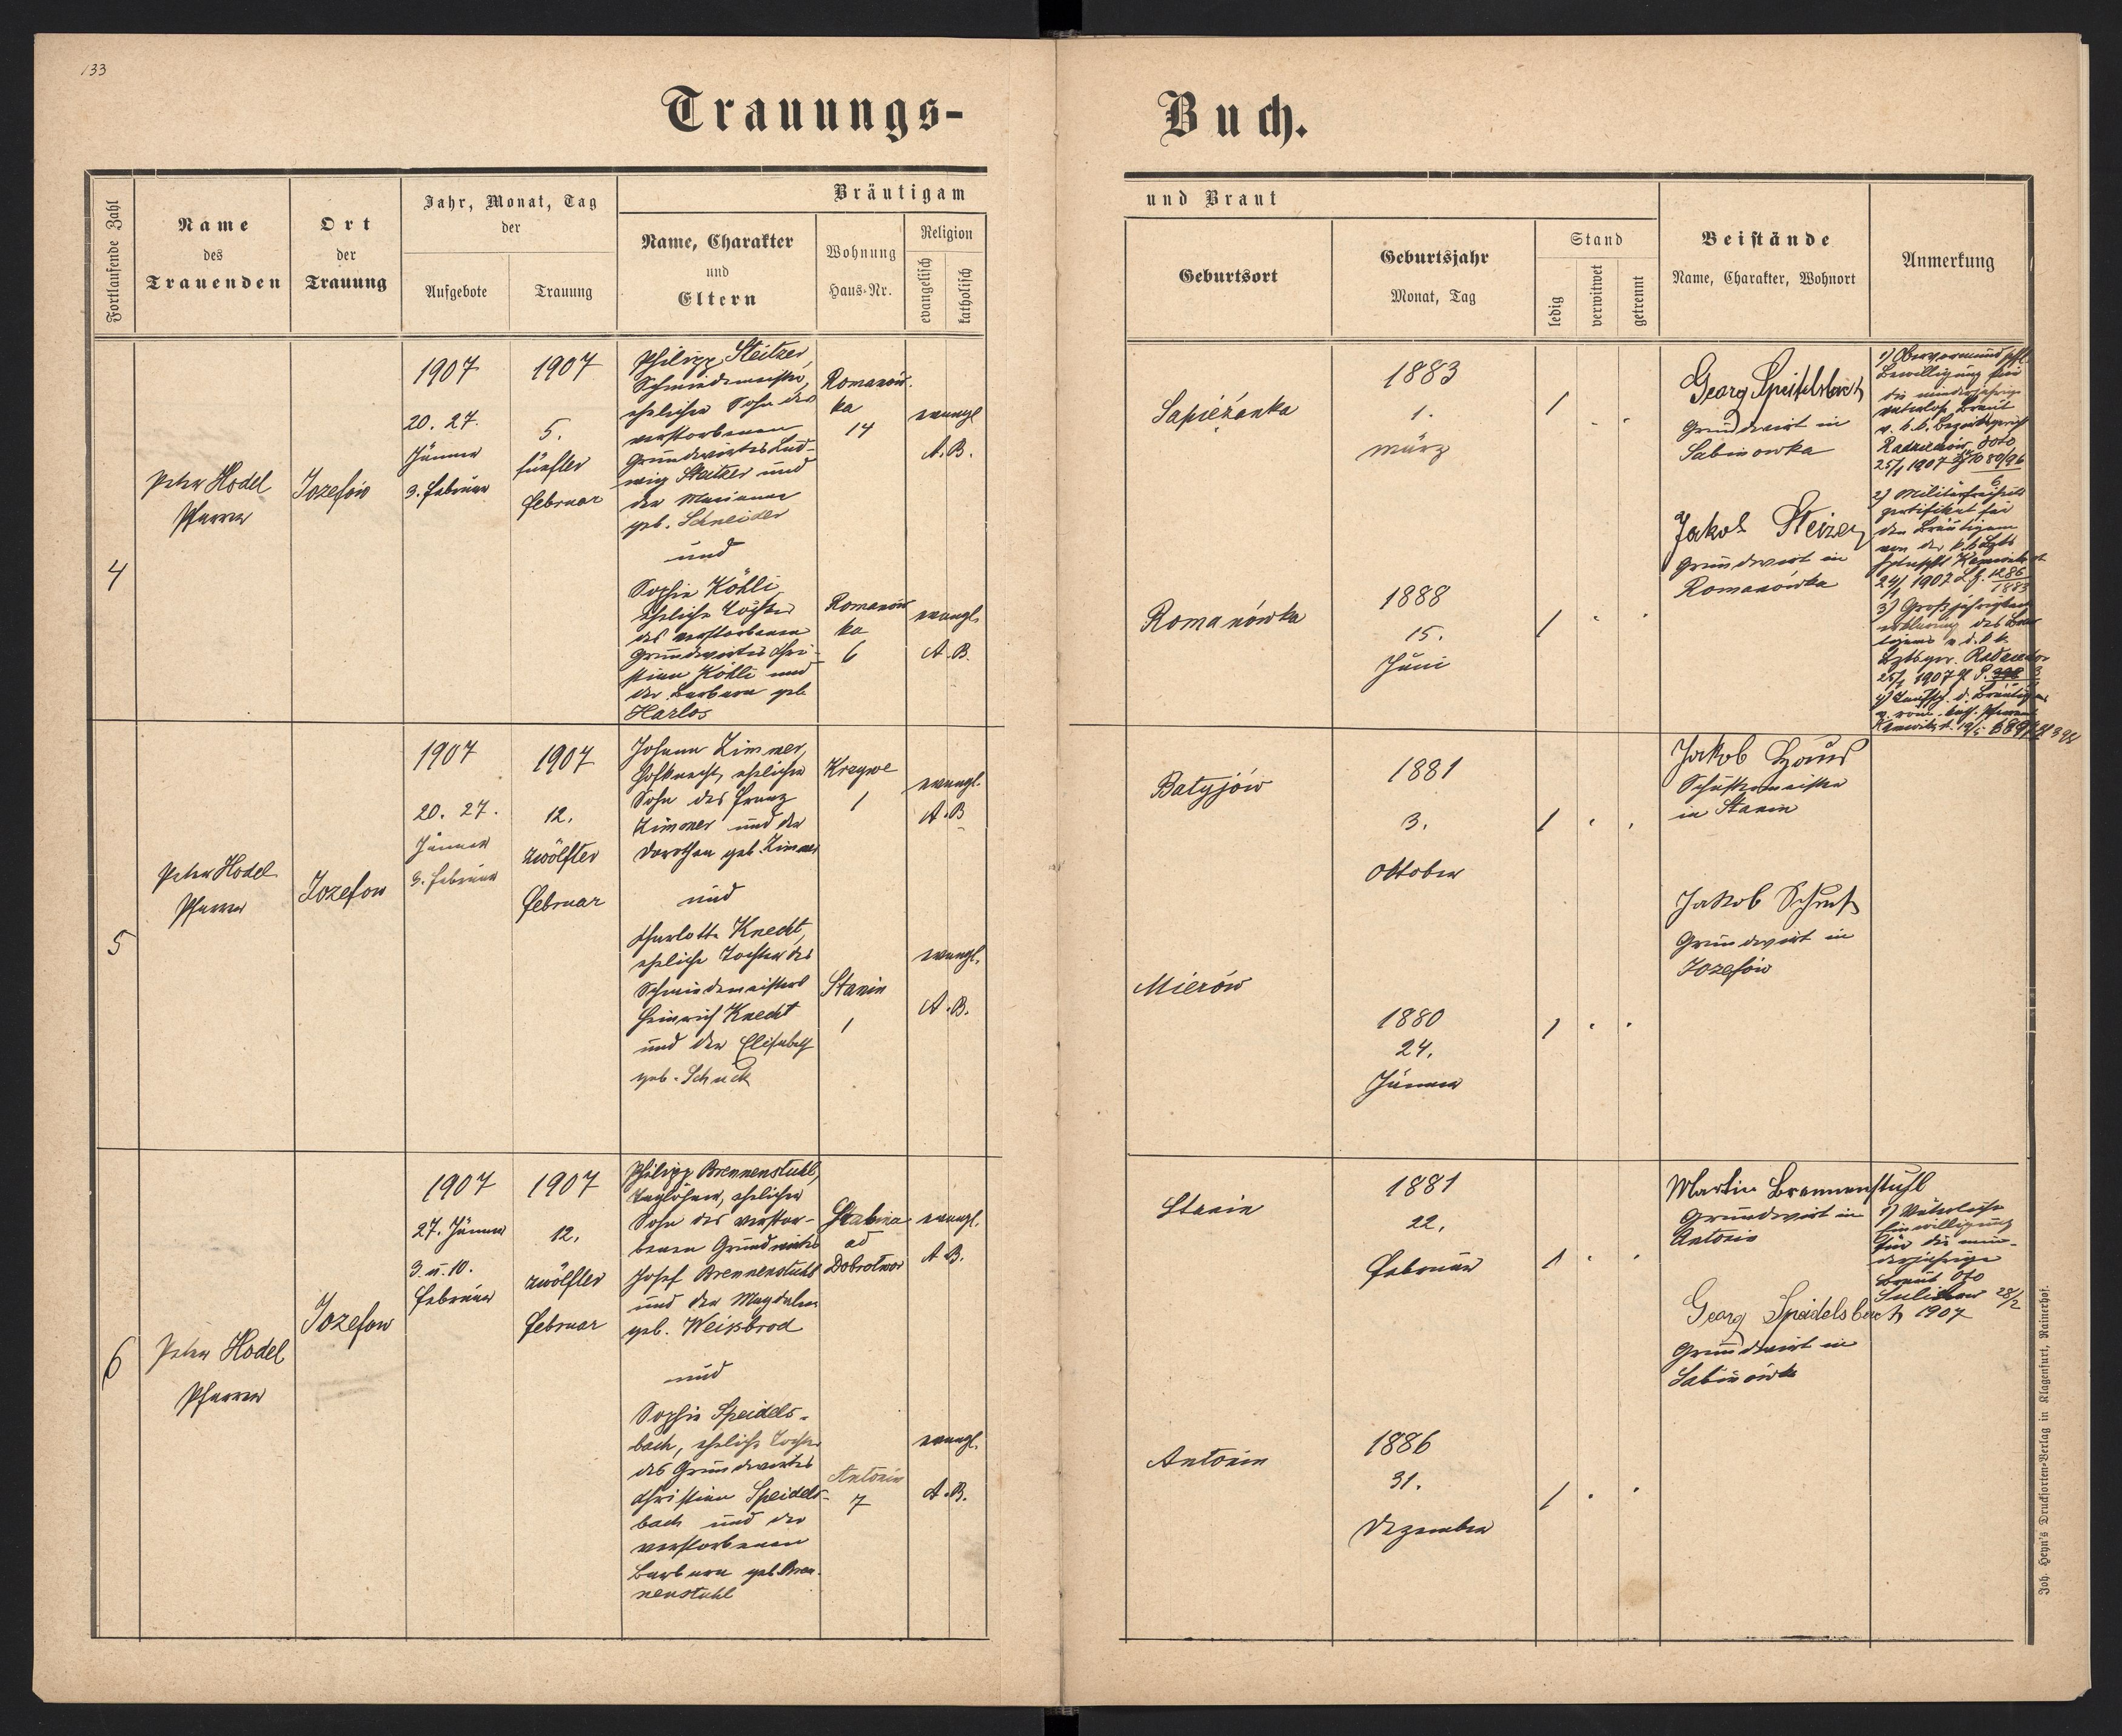 133
Trauungs-
Buch.
Fortlaufende Zahl
Name
des
Trauenden
Ort
der
Trauung
Jahr, Monat, Tag
der
Aufgebote
Trauung
Bräutigam
Name, Charakter
und
Eltern
Wohnung
Haus-Nr.
Religion
evangelisch
katholisch
und Braut
Geburtsort
Geburtsjahr
Monat, Tag
Stand
ledig
verwitwet
getrennt
Beistände
Name, Charakter, Wohnort
Anmerkung
4
Peter Hodel
Pfarrer
Josefów
1907
20. 27.
Jänner
3. Februar
1907
5.
fünfter
Februar
Philipp Steitzer,
Schmiedemeister,
ehelicher Sohn des
verstorbenen
Grundwirtes Lud-
wig Steitzer und
der Marianne
geb. Schneider
und
Sophie Köhli
eheliche Tochter
des verstorbenen
Grundwirtes Chri-
stian Köhli und
der Barbara geb.
Harlos
Romanów-
ka
14
evangl.
A. B.
Romanów
ka
6
evangl.
A. B.
Sapieżanka
1883
1.
März
1
Romanówka
1888
15.
Juni
1
Georg Speidelsbach
Grundwirt in
Sabinowka
Jakob Steizer
Grundwirt in
Romanówka
1) Obervormundschftl.
Bewilligung für
die minderjährige
vaterlose Braut
v. k. k. Bezirksgericht
25/1 1907
2) Militärfreiheits
zertifikat für
den Bräutigam
von der
24/1 1907
3) Großjährigkeits
erklärung des Bräu
tigams v. d. k. k.
25/1 1907
5
Peter Hodel
Pfarrer
Josefow
1907
20. 27.
Jänner
3. Februar
1907
12.
zwölfter
Februar
Johann Zimmer,
Hofknecht, ehelicher
Sohn des Franz
Zimmer und der
Dorothea geb. Zimmer
und
Charlotte Knecht,
eheliche Tochter des
Schmiedemeisters
Heinrich Knecht
und der Elisabeth
geb. Schuck
Krzywe
1
evangl.
A. B.
Stanin
1
evangl.
A. B.
Batyjów
1881
3.
Oktober
1
Mierów
1880
24.
Jänner
1
Jakob
Schustermeister
in Stanin
Jakob
Grundwirt in
Josefów
6
Peter Hodel
Pfarrer
Josefow
1907
27. Jänner
3. u. 10.
Februar
1907
12.
zwölfter
Februar
Philipp Brennenstuhl,
Taglöhner, ehelicher
Sohn des verstor-
benen Grundwirtes
Josef Brennenstuhl
und der Magdalena
geb. Weisbrod
und
Sophie Speidels-
bach, eheliche Tochter
des Grundwirtes
Christian Speidels-
bach und der
verstorbenen
Barbara geb. Bren-
nenstuhl
ad
Dobrotwor
evangl.
A. B.
Antonin
7
evangl.
A. B.
Stanin
1881
22.
Februar
1
Antonin
1886
31.
Dezember
1
Martin Brennenstuhl
Grundwirt in
Antonin
Georg Speidelsbach
Grundwirt in
Sabinówka
1) Väterliche
Einwilligung
für die min-
derjährige
Braut dto
28/2
1907
Joh. Heyn's Drucksorten-Verlag in Klagenfurt, Rainerhof.